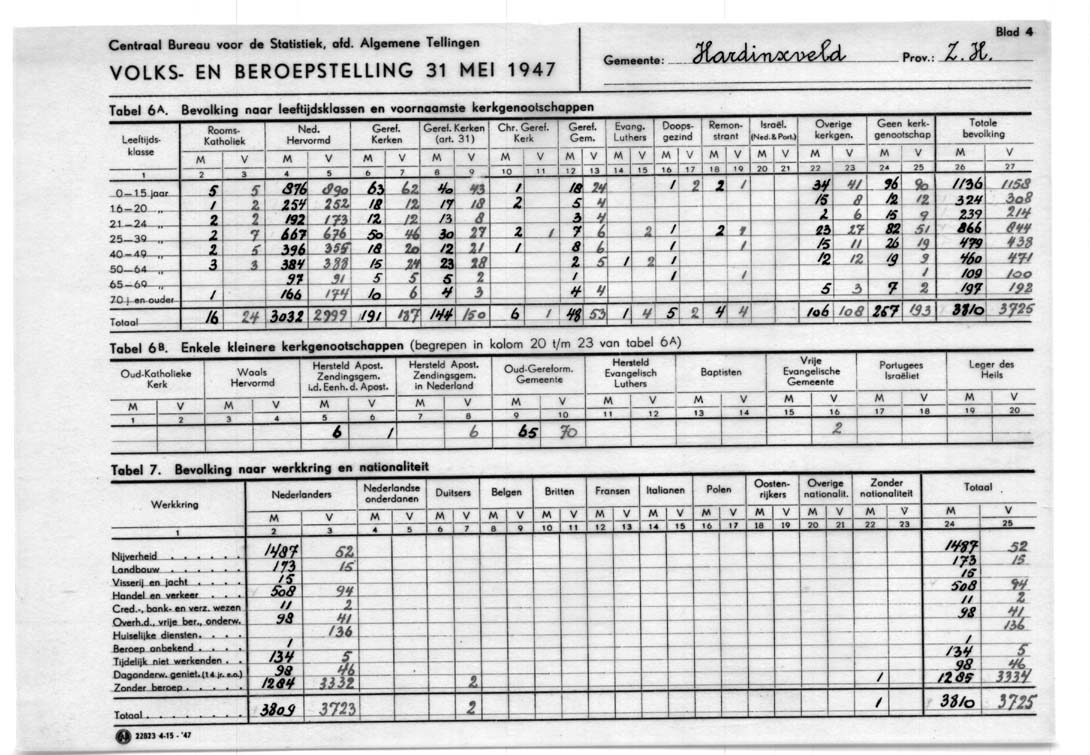 Blad 4
Centraal Bureau voor de Statistiek, afd. Algemene Tellingen
VOLKS- EN BEROEPSTELLING 31 MEI 1947
Gemeente: Hardinxveld Prov.: Z.H.
Tabel 6A. Bevolking naar leeftijdsklassen en voornaamste kerkgenootschappen
Leeftijdsklasse Rooms-Katholiek Ned. Hervormd Geref. Kerken Geref. Kerken (art. 31) Chr. Geref. Kerk Geref. Gem. Evang. Luthers Doopsgezind Remonstrant Israël. (Ned. & Port.) Overige kerkgen. Geen kerkgenootschap Totale bevolking
M V M V M V M V M V M V M V M V M V M V M V M V M V
1 2 3 4 5 6 7 8 9 10 11 12 13 14 15 16 17 18 19 20 21 22 23 24 25 26 27
0-15 jaar 5 5 876 890 63 62 40 43 1 18 24 1 2 2 1 34 41 96 90 1136 1158
16-20 „ 1 2 254 252 18 12 17 18 2 5 4 15 8 12 12 324 308
21-24 „ 2 2 192 173 12 12 13 8 3 4 2 6 15 9 239 214
25-39 „ 2 7 667 676 50 46 30 27 2 1 7 6 2 1 2 2 23 27 82 51 866 844
40-49 „ 2 5 396 355 18 20 12 21 1 8 6 1 15 11 26 19 479 438
50-64 „ 3 3 384 388 15 24 23 28 2 5 1 2 1 12 12 19 9 460 471
65-69 „ 97 91 5 5 5 2 1 1 1 1 109 100
70 j. en ouder 1 166 174 10 6 4 3 4 4 5 3 7 2 197 192
Totaal 16 24 3032 2999 191 187 144 150 6 1 48 53 1 4 5 2 4 4 106 108 257 193 3810 3725
Tabel 6B. Enkele kleinere kerkgenootschappen (begrepen in kolom 20 t/m 23 van tabel 6A)
Oud-Katholieke Kerk Waals Hervormd Hersteld Apost. Zendingsgem. i.d. Eenh. d. Apost. Hersteld Apost. Zendingsgem. in Nederland Oud-Gereform. Gemeente Hersteld Evangelisch Luthers Baptisten Vrije Evangelische Gemeente Portugees Israëliet Leger des Heils
M V M V M V M V M V M V M V M V M V M V
1 2 3 4 5 6 7 8 9 10 11 12 13 14 15 16 17 18 19 20
6 1 6 65 70 2
Tabel 7. Bevolking naar werkkring en nationaliteit
Werkkring Nederlanders Nederlandse onderdanen Duitsers Belgen Britten Fransen Italianen Polen Oostenrijkers Overige nationalit. Zonder nationaliteit Totaal
M V M V M V M V M V M V M V M V M V M V M V M V
1 2 3 4 5 6 7 8 9 10 11 12 13 14 15 16 17 18 19 20 21 22 23 24 25
Nijverheid . . . . . . 1487 52 1487 52
Landbouw . . . . . . 173 15 173 15
Visserij en jacht . . . . 15 15
Handel en verkeer . . . . 508 94 508 94
Cred.-, bank- en verz. wezen 11 2 11 2
Overh.d., vrije ber., onderw. 98 41 98 41
Huiselijke diensten . . . . 136 136
Beroep onbekend . . . . 1 1
Tijdelijk niet werkenden . . 134 5 134 5
Dagonderw. geniet. (14 jr. e.o.) 98 46 98 46
Zonder beroep . . . . . 1284 3332 2 1 1285 3334
Totaal . . . . . . . . 3809 3723 2 1 3810 3725
22823 4-15 - '47